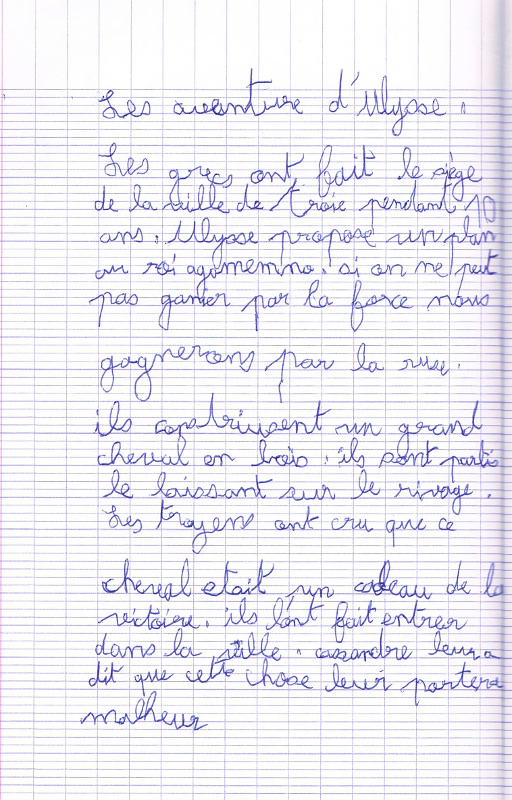 Les aventure d'Ulysse.
Les grecs ont fait le siège
de la ville de troie pendant 10
ans. Ulysse propose un plan
au roi agamemno. si on ne peut
pas ganier par la force nous
gagnerons par la ruse.
ils constriusent un grand
cheval en bois. ils sont partis
le laissant sur le rivage.
Les troyens ont cru que ce
cheval etait un cadeau de la
victoire. ils l'ont fait entrer
dans la ville. cassandre leur a
dit que cette chose leur portera
malheur